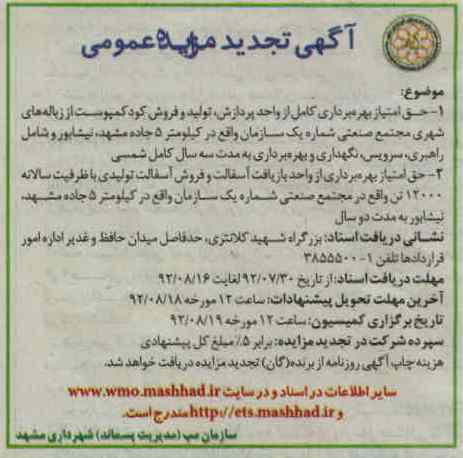 آگهی تجدید مزایده عمومی
موضوع:
۱- حق امتیاز بهره‌برداری کامل از واحد پردازش، تولید و فروش کود کمپوست از زباله‌های
شهری مجتمع صنعتی شماره یک سازمان واقع در کیلومتر ۵ جاده مشهد، نیشابور و شامل
راهبری، سرویس، نگهداری و بهره‌برداری به مدت سه سال کامل شمسی
۲- حق امتیاز بهره‌برداری از واحد بازیافت آسفالت و فروش آسفالت تولیدی با ظرفیت سالانه
۱۲۰۰۰ تن واقع در مجتمع صنعتی شماره یک سازمان واقع در کیلومتر ۵ جاده مشهد،
نیشابور به مدت دو سال
نشانی دریافت اسناد: بزرگراه شهید کلانتری، حدفاصل میدان حافظ و غدیر اداره امور
قراردادها تلفن ۱-۳۸۵۵۵۰۰
مهلت دریافت اسناد: از تاریخ ۹۲/۰۷/۳۰ لغایت ۹۲/۰۸/۱۶
آخرین مهلت تحویل پیشنهادات: ساعت ۱۲ مورخه ۹۲/۰۸/۱۸
تاریخ برگزاری کمیسیون: ساعت ۱۲ مورخه ۹۲/۰۸/۱۹
سپرده شرکت در تجدید مزایده: برابر ۵٪ مبلغ کل پیشنهادی
هزینه چاپ آگهی روزنامه از برنده(گان) تجدید مزایده دریافت خواهد شد.
سایر اطلاعات در اسناد و در سایت www.wmo.mashhad.ir
و http://ets.mashhad.ir مندرج است.
سازمان مپ (مدیریت پسماند) شهرداری مشهد